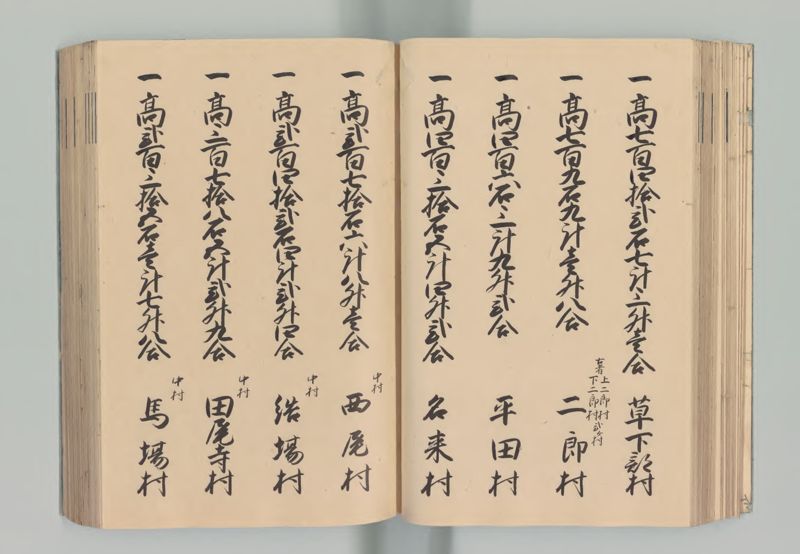 一 高七百四拾弐石七斗三升壱合 草下部村
一 高七百九石九斗壱升八合 二郎村
右者上二郎村
下二郎村弐ヶ村
一 高四百六石三斗九升弐合 平田村
一 高四百三拾石五斗四升弐合 名来村
一 高弐百七拾石六斗八升壱合 中村 西尾村
一 高弐百四拾弐石四斗弐升四合 中村 結場村
一 高三百七拾八石五斗弐升九合 中村 田尾寺村
一 高弐百三拾五石壱斗七升八合 中村 馬場村